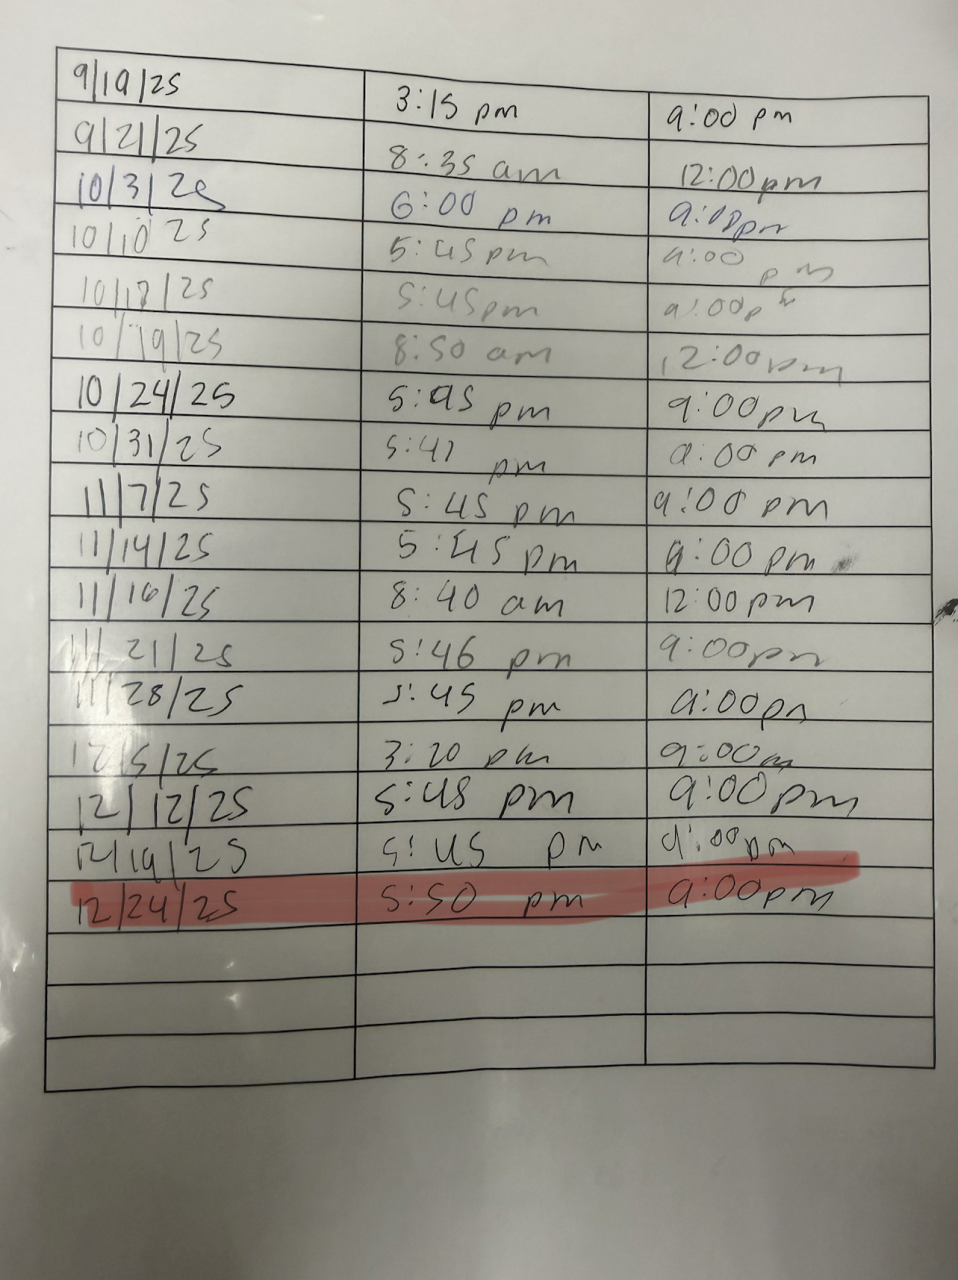 9/19/25 3:15 pm 9:00 pm
9/21/25 8:35 am 12:00pm
10/3/25 6:00 pm 9:00pm
10/10 25 5:45pm 9:00 pm
10/17/25 5:45pm 9:00p
10/19/25 8:50 am 12:00pm
10/24/25 5:45 pm 9:00pm
10/31/25 5:47 pm 9:00 pm
11/7/25 5:45 pm 9:00 pm
11/14/25 5:45 pm 9:00 pm
11/16/25 8:40 am 12:00pm
11/21/25 5:46 pm 9:00pm
11/28/25 5:45 pm 9:00pm
12/5/25 3:20 pm 9:00
12/12/25 5:45 pm 9:00pm
12/19/25 5:45 pm 9:00pm
12/24/25 5:50 pm 9:00pm